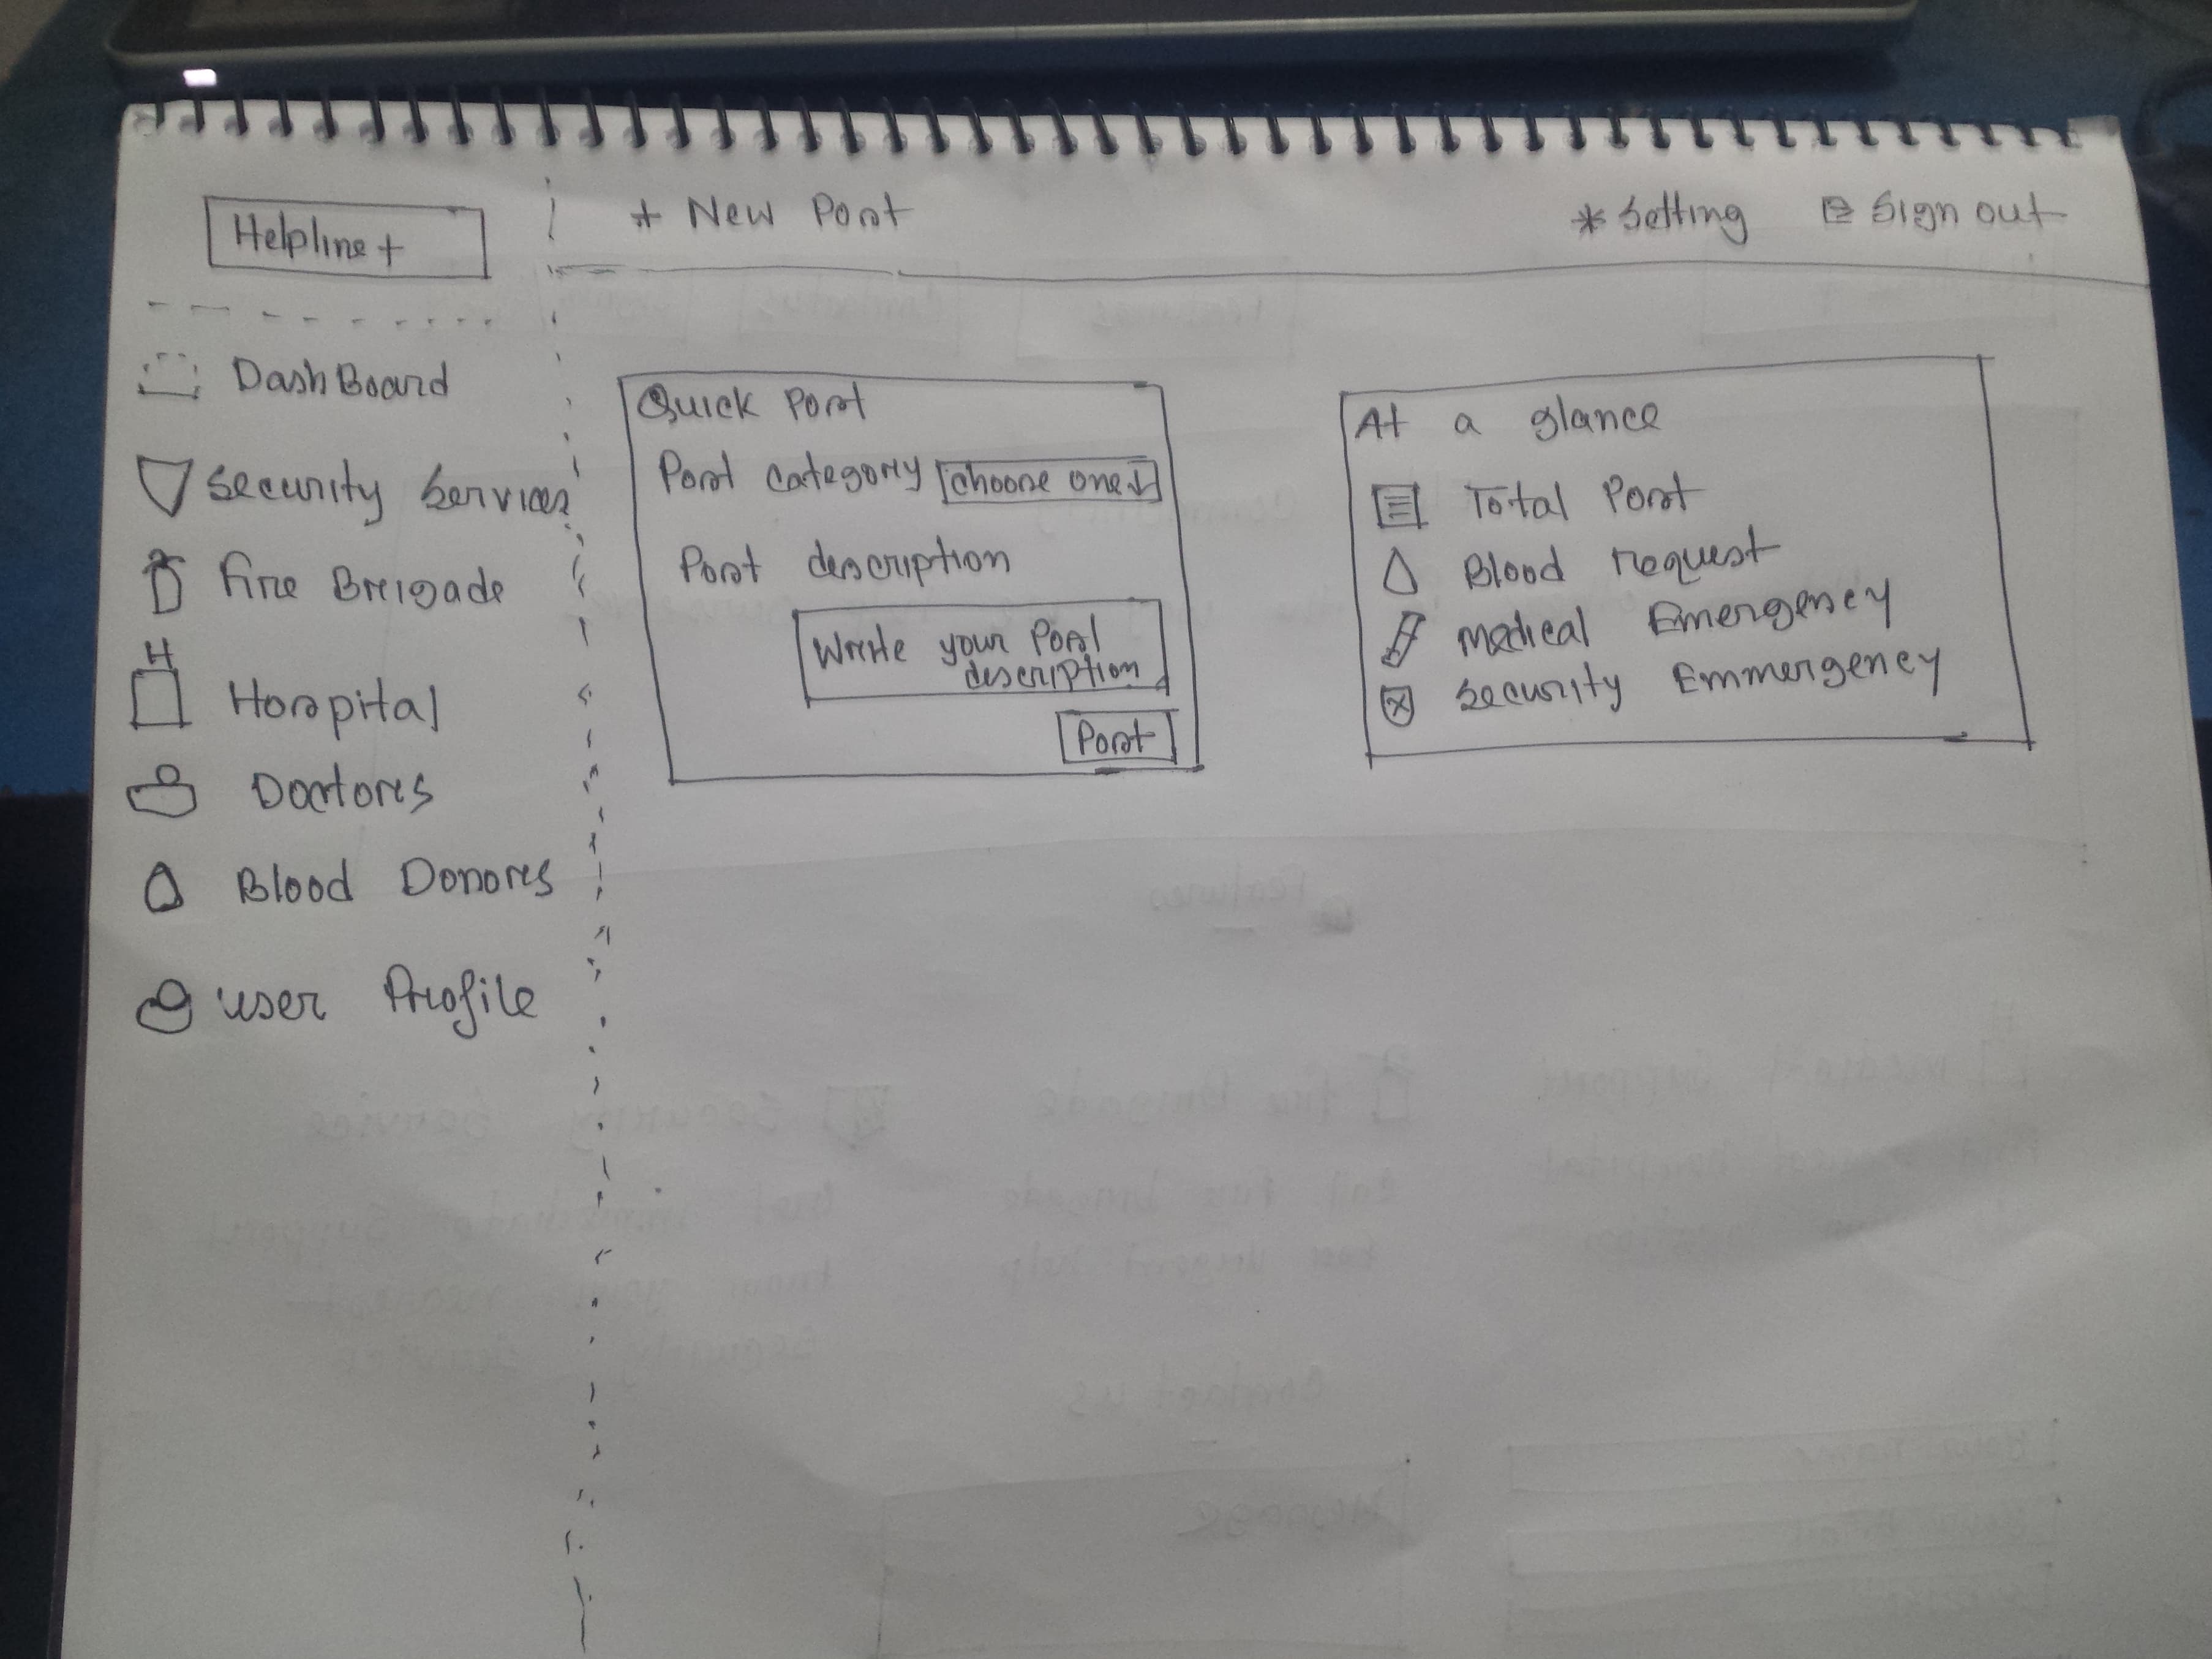 Helpline +
+ New Post
Setting
Sign out
DashBoard
Security Services
Fire Brigade
H
Hospital
Doctores
Blood Donores
User Profile
Quick Post
Post category choose one
Post description
Write your Post
description
Post
At a glance
Total Post
Blood request
Medical Emergency
Security Emmergency